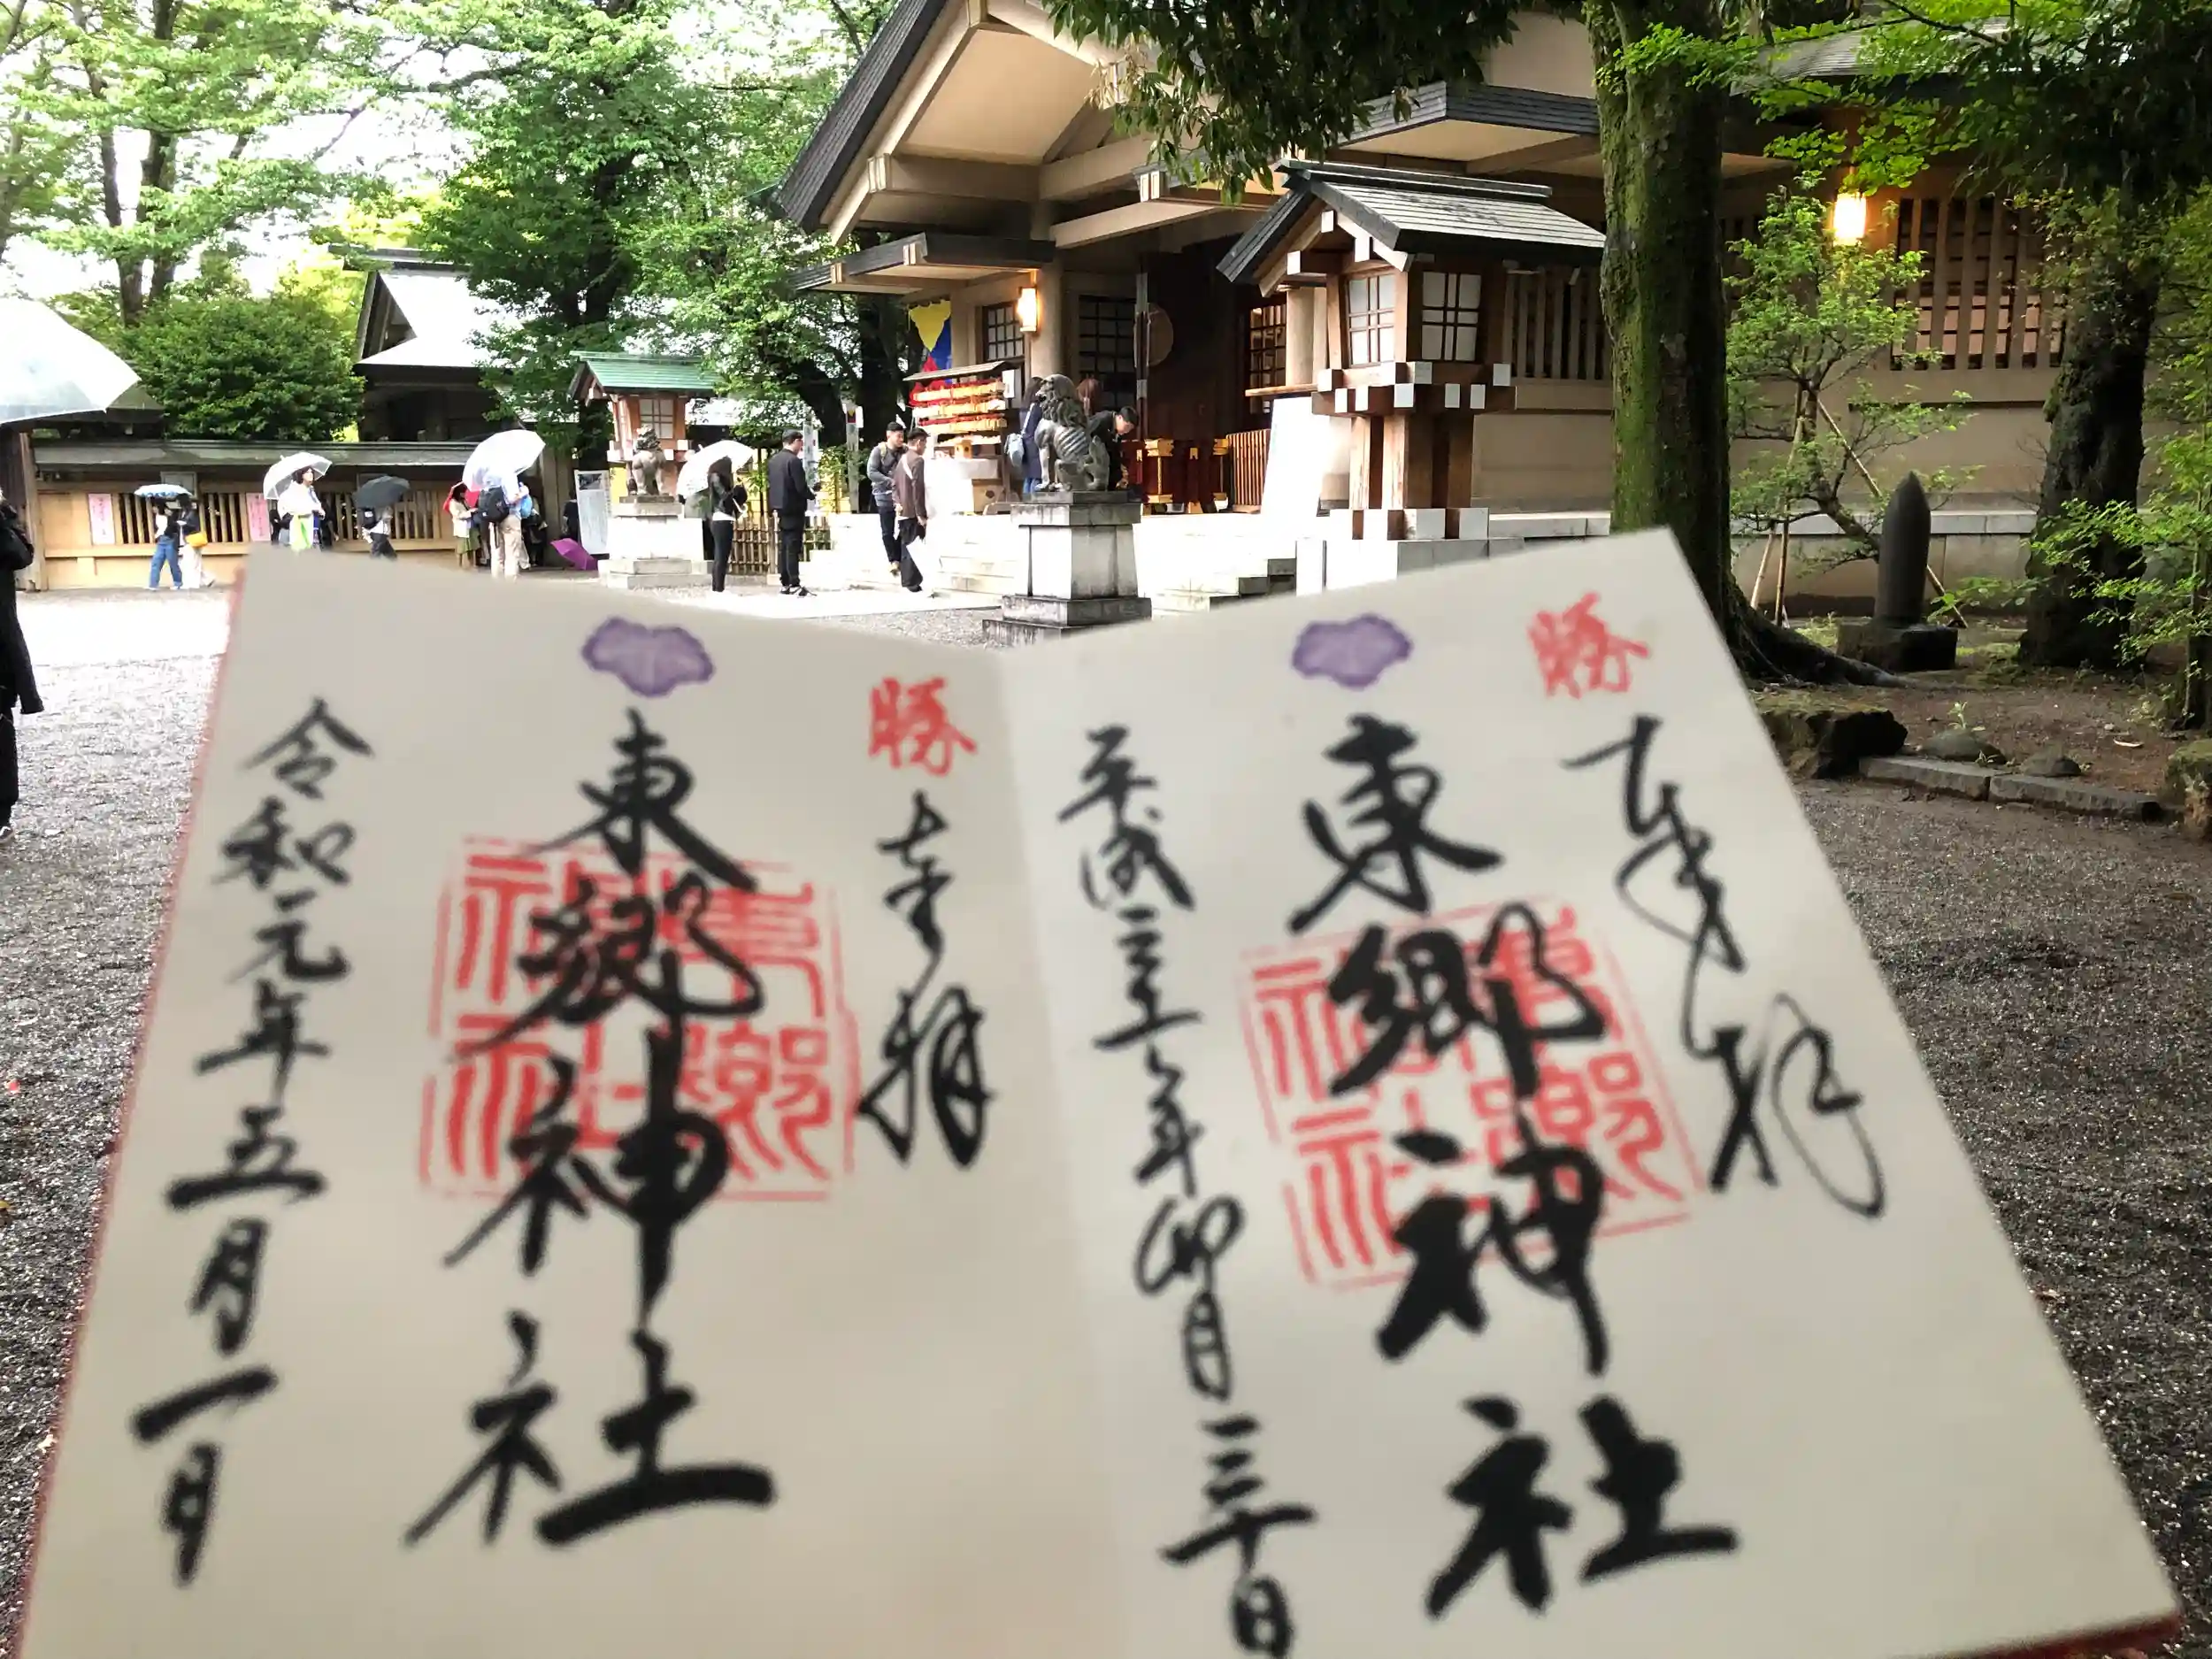 勝
奉拝
東郷神社
東郷神社
平成三十一年卯月三十日
勝
奉拝
東郷神社
東郷神社
令和元年五月一日